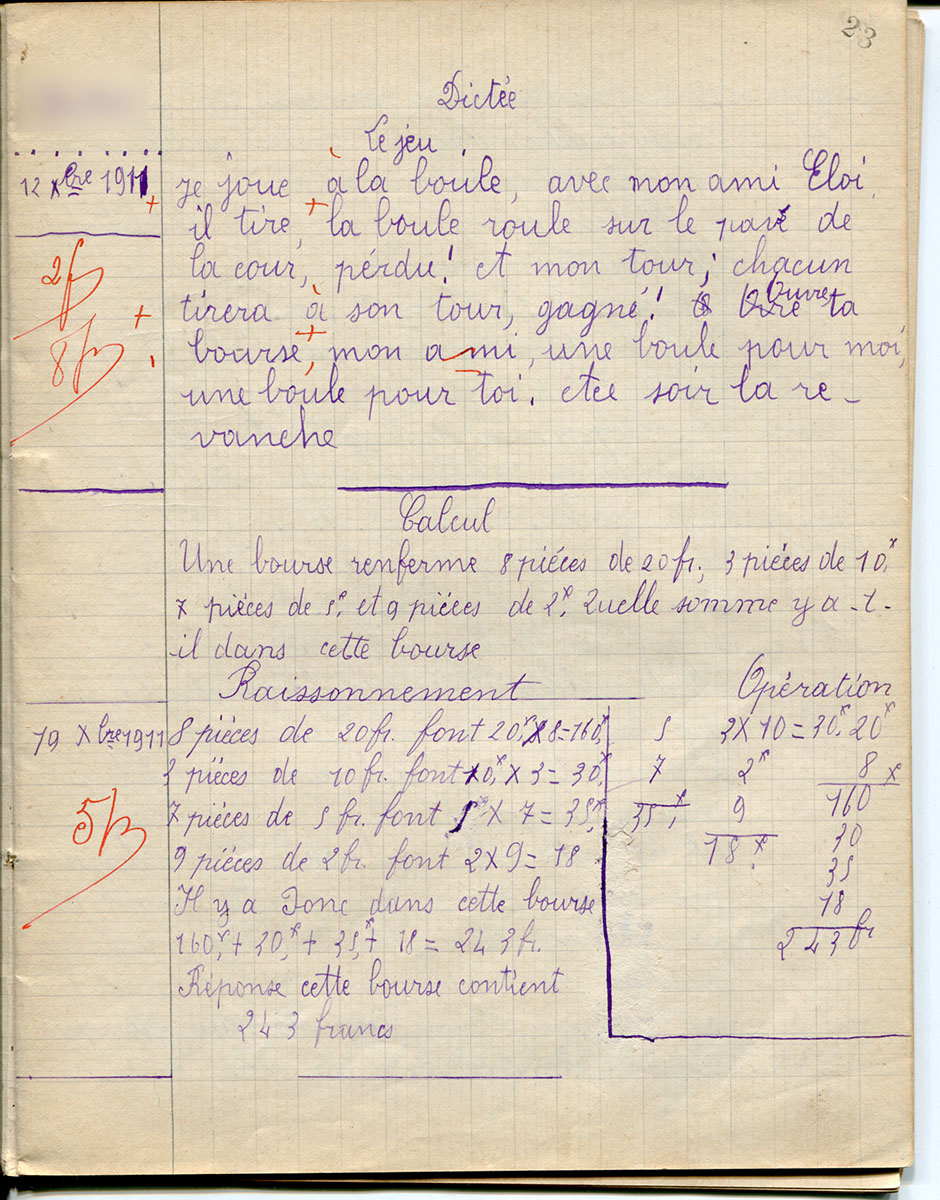 23
Dictée
Le jeu.
12 Xbre 1911
je joue à la boule, avec mon ami Eloi,
il tire, la boule roule sur le pavé de
la cour, pérdu! et mon tour; chacun
tirera à son tour, gagné! Ouvre ta
bourse, mon ami, une boule pour moi,
une boule pour toi. etce soir la re-
vanche
2f
8f
Calcul
Une bourse renferme 8 piéces de 20 fr., 3 piéces de 10f,
7 piéces de 5f. et 9 piéces de 2f. Quelle somme y a-t-
il dans cette bourse
Raissonnement
Opération
19 Xbre 1911
8 piéces de 20 fr. font 20f × 8 = 160f
3 piéces de 10 fr. font 10f × 3 = 30f
7 piéces de 5 fr. font 5 × 7 = 35f
9 piéces de 2 fr. font 2 × 9 = 18
Il y a Donc dans cette bourse
160f + 30f + 35f + 18 = 243 fr.
Réponse cette bourse contient
243 francs
5f
5 3 × 10 = 30f 20f
7 2f 8
35f 9 160
18f 30
35
18
243 fr